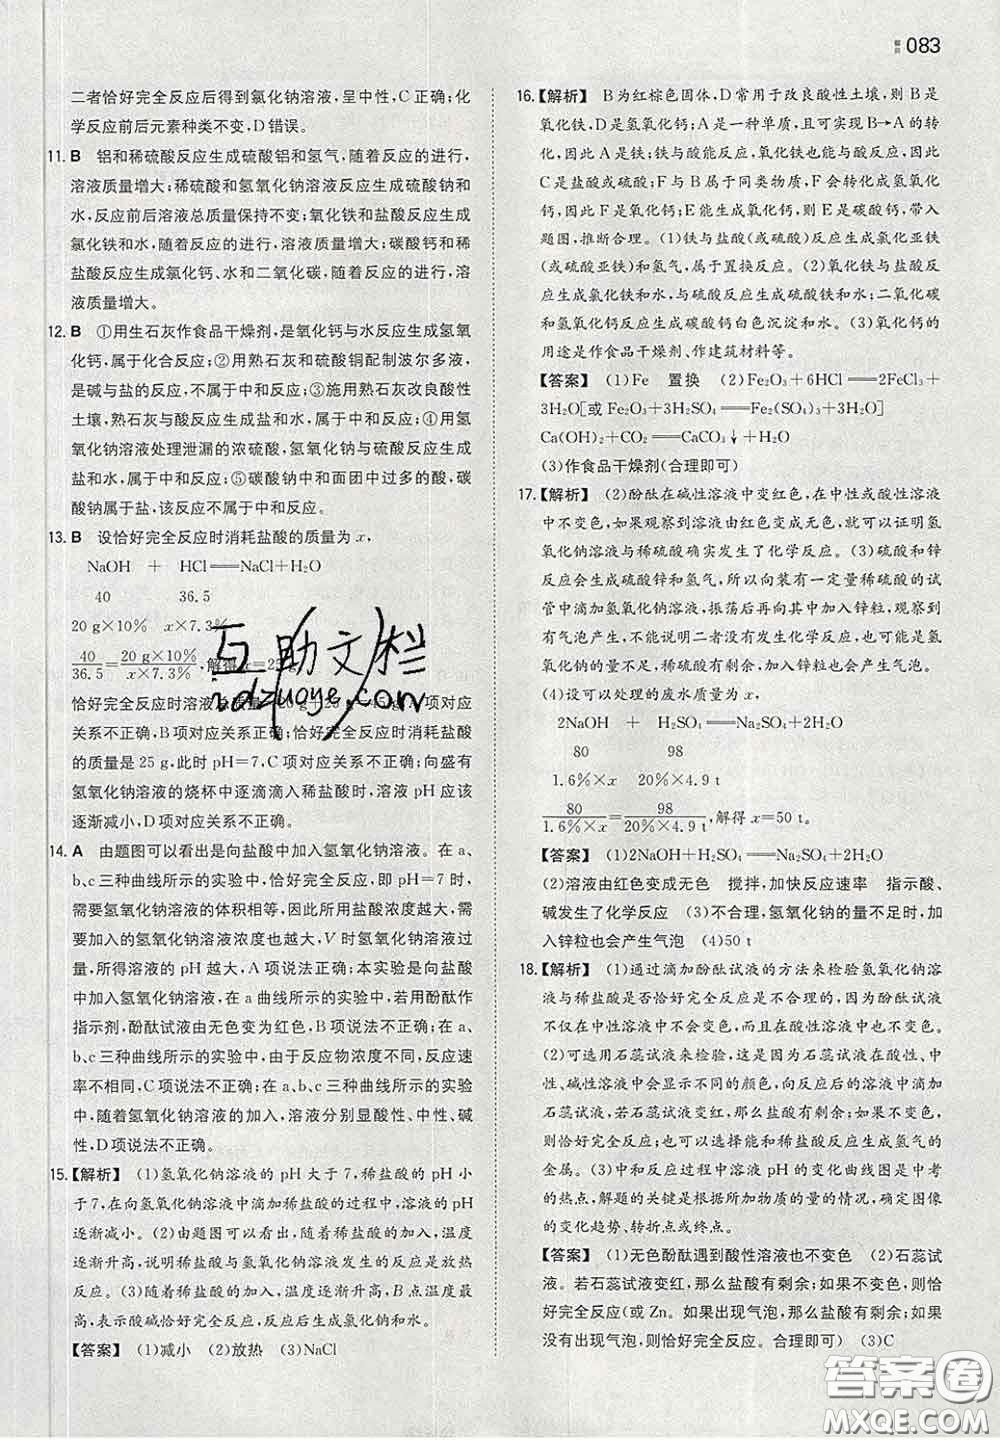 解答 083
二者恰好完全反应后得到氯化钠溶液,呈中性,C正确;化
学反应前后元素种类不变,D错误。
11. B 铝和稀硫酸反应生成硫酸铝和氢气,随着反应的进行,
溶液质量增大;稀硫酸和氢氧化钠溶液反应生成硫酸钠和
水,反应前后溶液总质量保持不变;氧化铁和盐酸反应生成
氯化铁和水,随着反应的进行,溶液质量增大;碳酸钙和稀
盐酸反应生成氯化钙、水和二氧化碳,随着反应的进行,溶
液质量增大。
12. B ①用生石灰作食品干燥剂,是氧化钙与水反应生成氢氧
化钙,属于化合反应;②用熟石灰和硫酸铜配制波尔多液,
是碱与盐的反应,不属于中和反应;③施用熟石灰改良酸性
土壤,熟石灰与酸反应生成盐和水,属于中和反应;④用氢
氧化钠溶液处理泄漏的浓硫酸,氢氧化钠与硫酸反应生成
盐和水,属于中和反应;⑤碳酸钠中和面团中过多的酸,碳
酸钠属于盐,该反应不属于中和反应。
13. B 设恰好完全反应时消耗盐酸的质量为x,
NaOH + HCl══NaCl+H₂O
40 36.5
20 g×10% x×7.3%
40/36.5=20 g×10%/x×7.3%,解得x=25 g
恰好完全反应时溶液总质量=20 g+25 g=45 g,A项对应
关系正确;B项对应关系正确;恰好完全反应时消耗盐酸
的质量是25 g,此时pH=7,C项对应关系不正确;向盛有
氢氧化钠溶液的烧杯中逐滴滴入稀盐酸时,溶液pH应该
逐渐减小,D项对应关系不正确。
14. A 由题图可以看出是向盐酸中加入氢氧化钠溶液。在a、
b、c三种曲线所示的实验中,恰好完全反应,即pH=7时,
需要氢氧化钠溶液的体积相等,因此所用盐酸浓度越大,需
要加入的氢氧化钠溶液浓度也越大,V时氢氧化钠溶液过
量,所得溶液的pH越大,A项说法正确;本实验是向盐酸
中加入氢氧化钠溶液,在a曲线所示的实验中,若用酚酞作
指示剂,酚酞试液由无色变为红色,B项说法不正确;在a、
b、c三种曲线所示的实验中,由于反应物浓度不同,反应速
率不相同,C项说法不正确;在a、b、c三种曲线所示的实验
中,随着氢氧化钠溶液的加入,溶液分别显酸性、中性、碱
性,D项说法不正确。
15.【解析】 (1)氢氧化钠溶液的pH大于7,稀盐酸的pH小
于7,在向氢氧化钠溶液中滴加稀盐酸的过程中,溶液的pH
逐渐减小。(2)由题图可以看出,随着稀盐酸的加入,温度
逐渐升高,说明稀盐酸与氢氧化钠溶液发生的反应是放热
反应。(3)随着稀盐酸的加入,温度逐渐升高,B点温度最
高,表示酸碱恰好完全反应,反应后生成氯化钠和水。
【答案】 (1)减小 (2)放热 (3)NaCl
16.【解析】 B为红棕色固体,D常用于改良酸性土壤,则B是
氧化铁,D是氢氧化钙;A是一种单质,且可实现B→A的转
化,因此A是铁;铁与酸能反应,氧化铁也能与酸反应,因此
C是盐酸或硫酸;F与B属于同类物质,F会转化成氢氧化
钙,因此F是氧化钙;E能生成氧化钙,则E是碳酸钙,带入
题图,推断合理。(1)铁与盐酸(或硫酸)反应生成氯化亚铁
(或硫酸亚铁)和氢气,属于置换反应。(2)氧化铁与盐酸反
应生成氯化铁和水,与硫酸反应生成硫酸铁和水;二氧化碳
和氢氧化钙反应生成碳酸钙白色沉淀和水。(3)氧化钙的
用途是作食品干燥剂、作建筑材料等。
【答案】 (1)Fe 置换 (2)Fe₂O₃+6HCl══2FeCl₃+
3H₂O[或Fe₂O₃+3H₂SO₄══Fe₂(SO₄)₃+3H₂O]
Ca(OH)₂+CO₂══CaCO₃↓+H₂O
(3)作食品干燥剂(合理即可)
17.【解析】 (2)酚酞在碱性溶液中变红色,在中性或酸性溶液
中不变色,如果观察到溶液由红色变成无色,就可以证明氢
氧化钠溶液与稀硫酸确实发生了化学反应。(3)硫酸和锌
反应会生成硫酸锌和氢气,所以向装有一定量稀硫酸的试
管中滴加氢氧化钠溶液,振荡后再向其中加入锌粒,发现有
有气泡产生,不能说明二者没有发生化学反应,可能是氢氧
化钠的量不足,稀硫酸有剩余,加入锌粒也会产生气泡。
(4)设可以处理的废水质量为x,
2NaOH + H₂SO₄══Na₂SO₄+2H₂O
80 98
1.6%×x 20%×4.9 t
80/1.6%×x=98/20%×4.9 t,解得x=50 t。
【答案】 (1)2NaOH+H₂SO₄══Na₂SO₄+2H₂O
(2)溶液由红色变成无色 搅拌,加快反应速率 指示酸、
碱发生了化学反应 (3)不合理,氢氧化钠的量不足时,加
入锌粒也会产生气泡 (4)50 t
18.【解析】 (1)通过滴加酚酞试液的方法来检验氢氧化钠溶
液与稀盐酸是否恰好完全反应是不合理的,因为酚酞试液
不仅在中性溶液中不会变色,而且在酸性溶液中也不变色。
(2)可选用石蕊试液来检验,这是因为石蕊试液在酸性、中
性、碱性溶液中会显示不同的颜色,向反应后的溶液中滴加
石蕊试液,若石蕊试液变红,那么盐酸有剩余;如果不变色,
则恰好完全反应;也可以选择能和盐酸反应生成氢气的
金属。(3)中和反应过程中溶液pH的变化曲线图是中考
的热点,解题的关键是根据所加物质的量的情况,确定图像
的变化趋势、转折点或终点。
【答案】 (1)无色酚酞遇到酸性溶液也不变色 (2)石蕊试
液。若石蕊试液变红,那么盐酸有剩余;如果不变色,则恰
好完全反应(或Zn。如果出现气泡,那么盐酸有剩余;如果
没有出现气泡,则恰好完全反应。合理即可) (3)C
互助文档
答案圈
MXQE.COM